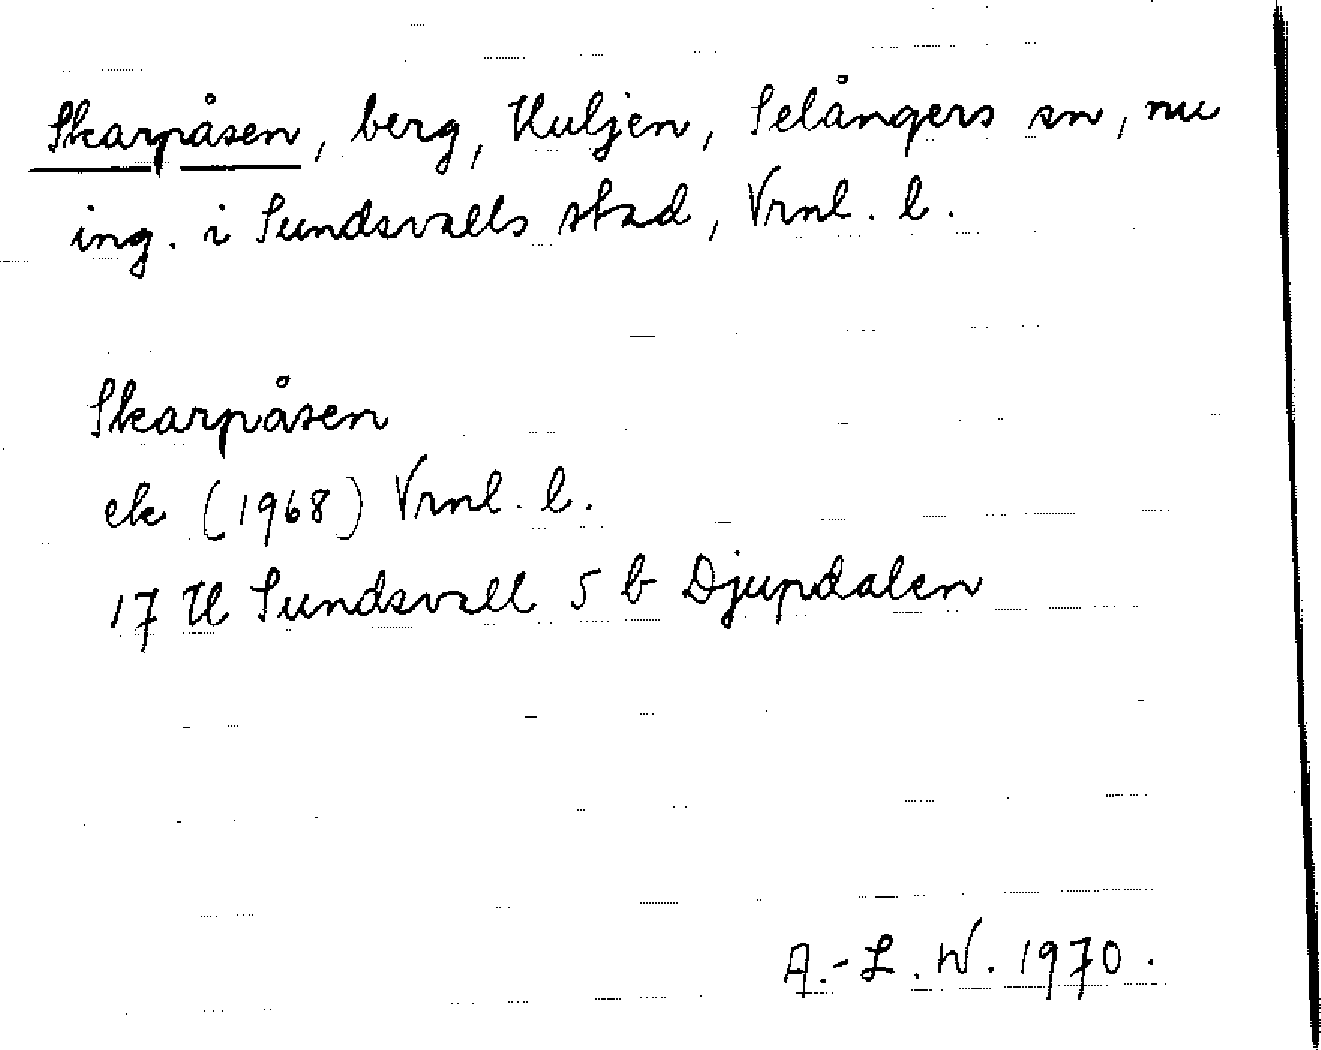 Skarpåsen, berg, Huljen, Selångers sn, nu
ing. i Sundsvalls stad, Vrnl. l.
Skarpåsen
ek (1968) Vrnl. l.
17 H Sundsvall 5 b Djupdalen
A.-L. W. 1970.